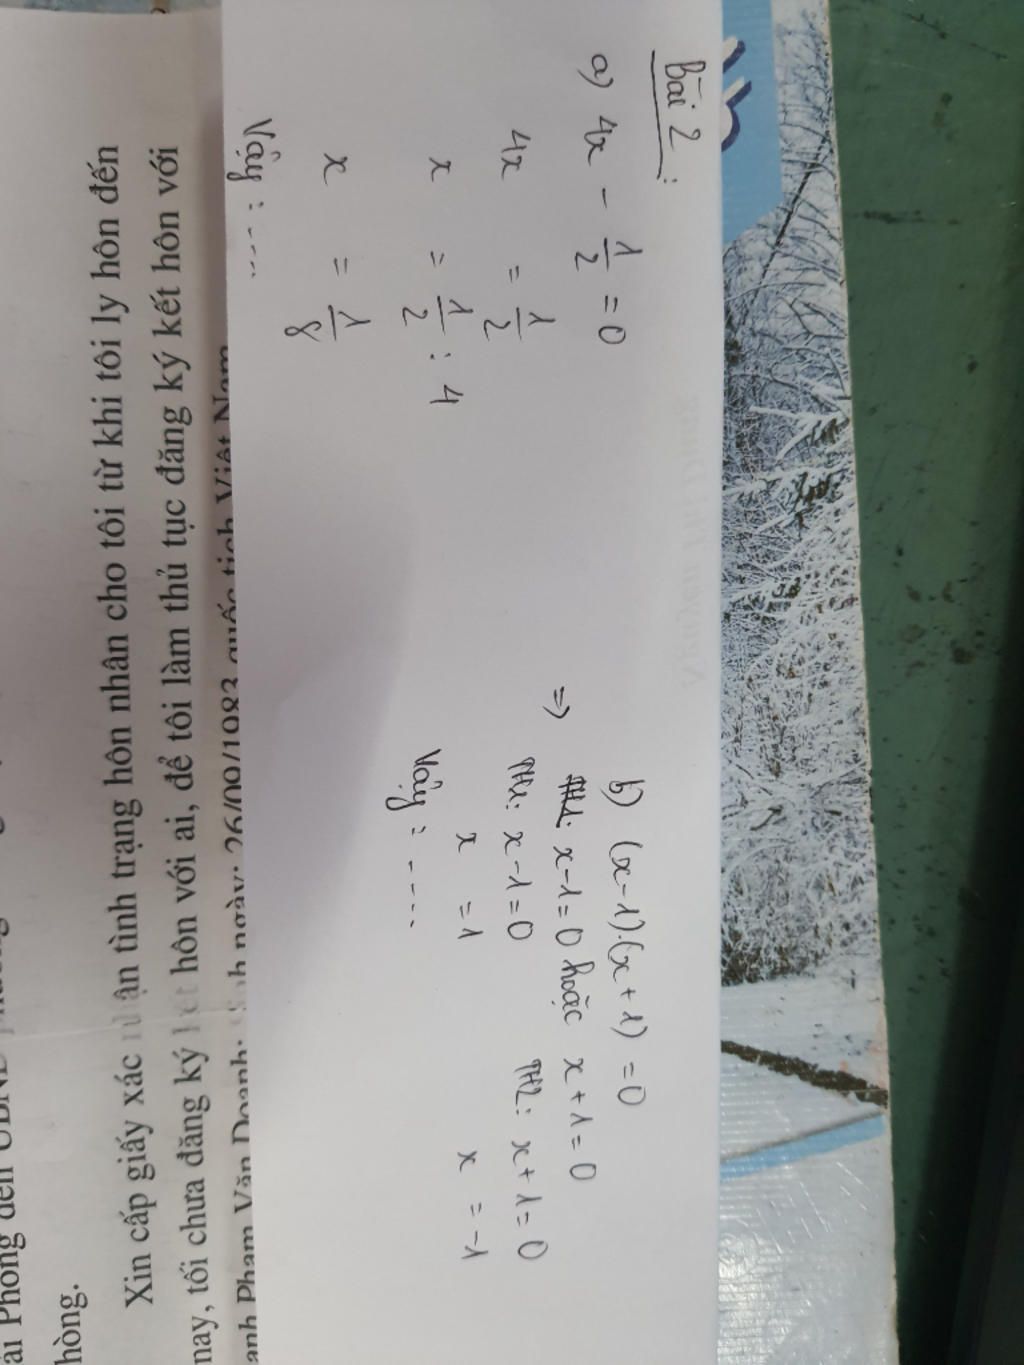 Bài 2:
a) 4x - 1/2 = 0
4x = 1/2
x = 1/2 : 4
x = 1/8
Vậy: ....
b) (x-1).(x+1) = 0
=> x-1=0 hoặc x+1=0
TH1: x-1=0 TH2: x+1=0
x =1 x = -1
Vậy: ....
hòng.
Xin cấp giấy xác nhận tình trạng hôn nhân cho tôi từ khi tôi ly hôn đến
nay, tối chưa đăng ký kết hôn với ai, để tôi làm thủ tục đăng ký kết hôn với
anh Phạm Văn Doanh; sinh ngày: 26/09/1983 quốc tịch Việt Nam